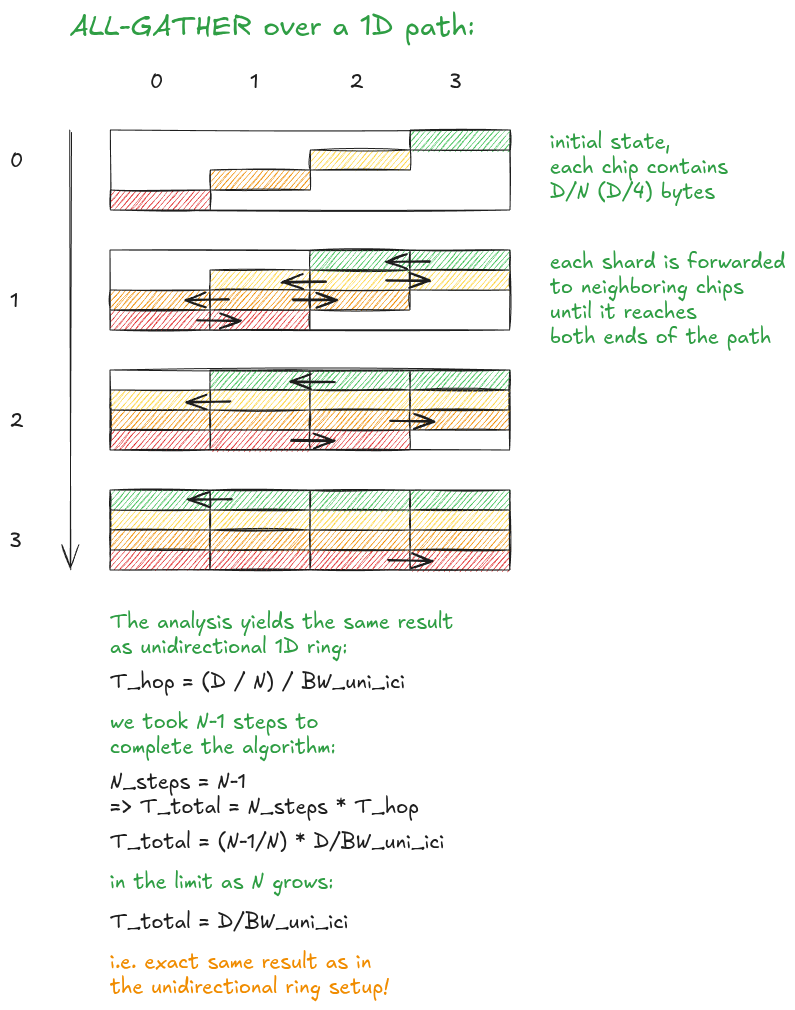 ALL-GATHER over a 1D path:
0 1 2 3
0
initial state,
each chip contains
D/N (D/4) bytes
1
each shard is forwarded
to neighboring chips
until it reaches
both ends of the path
2
3
The analysis yields the same result
as unidirectional 1D ring:
T_hop = (D / N) / BW_uni_ici
we took N-1 steps to
complete the algorithm:
N_steps = N-1
=> T_total = N_steps * T_hop
T_total = (N-1/N) * D/BW_uni_ici
in the limit as N grows:
T_total = D/BW_uni_ici
i.e. exact same result as in
the unidirectional ring setup!